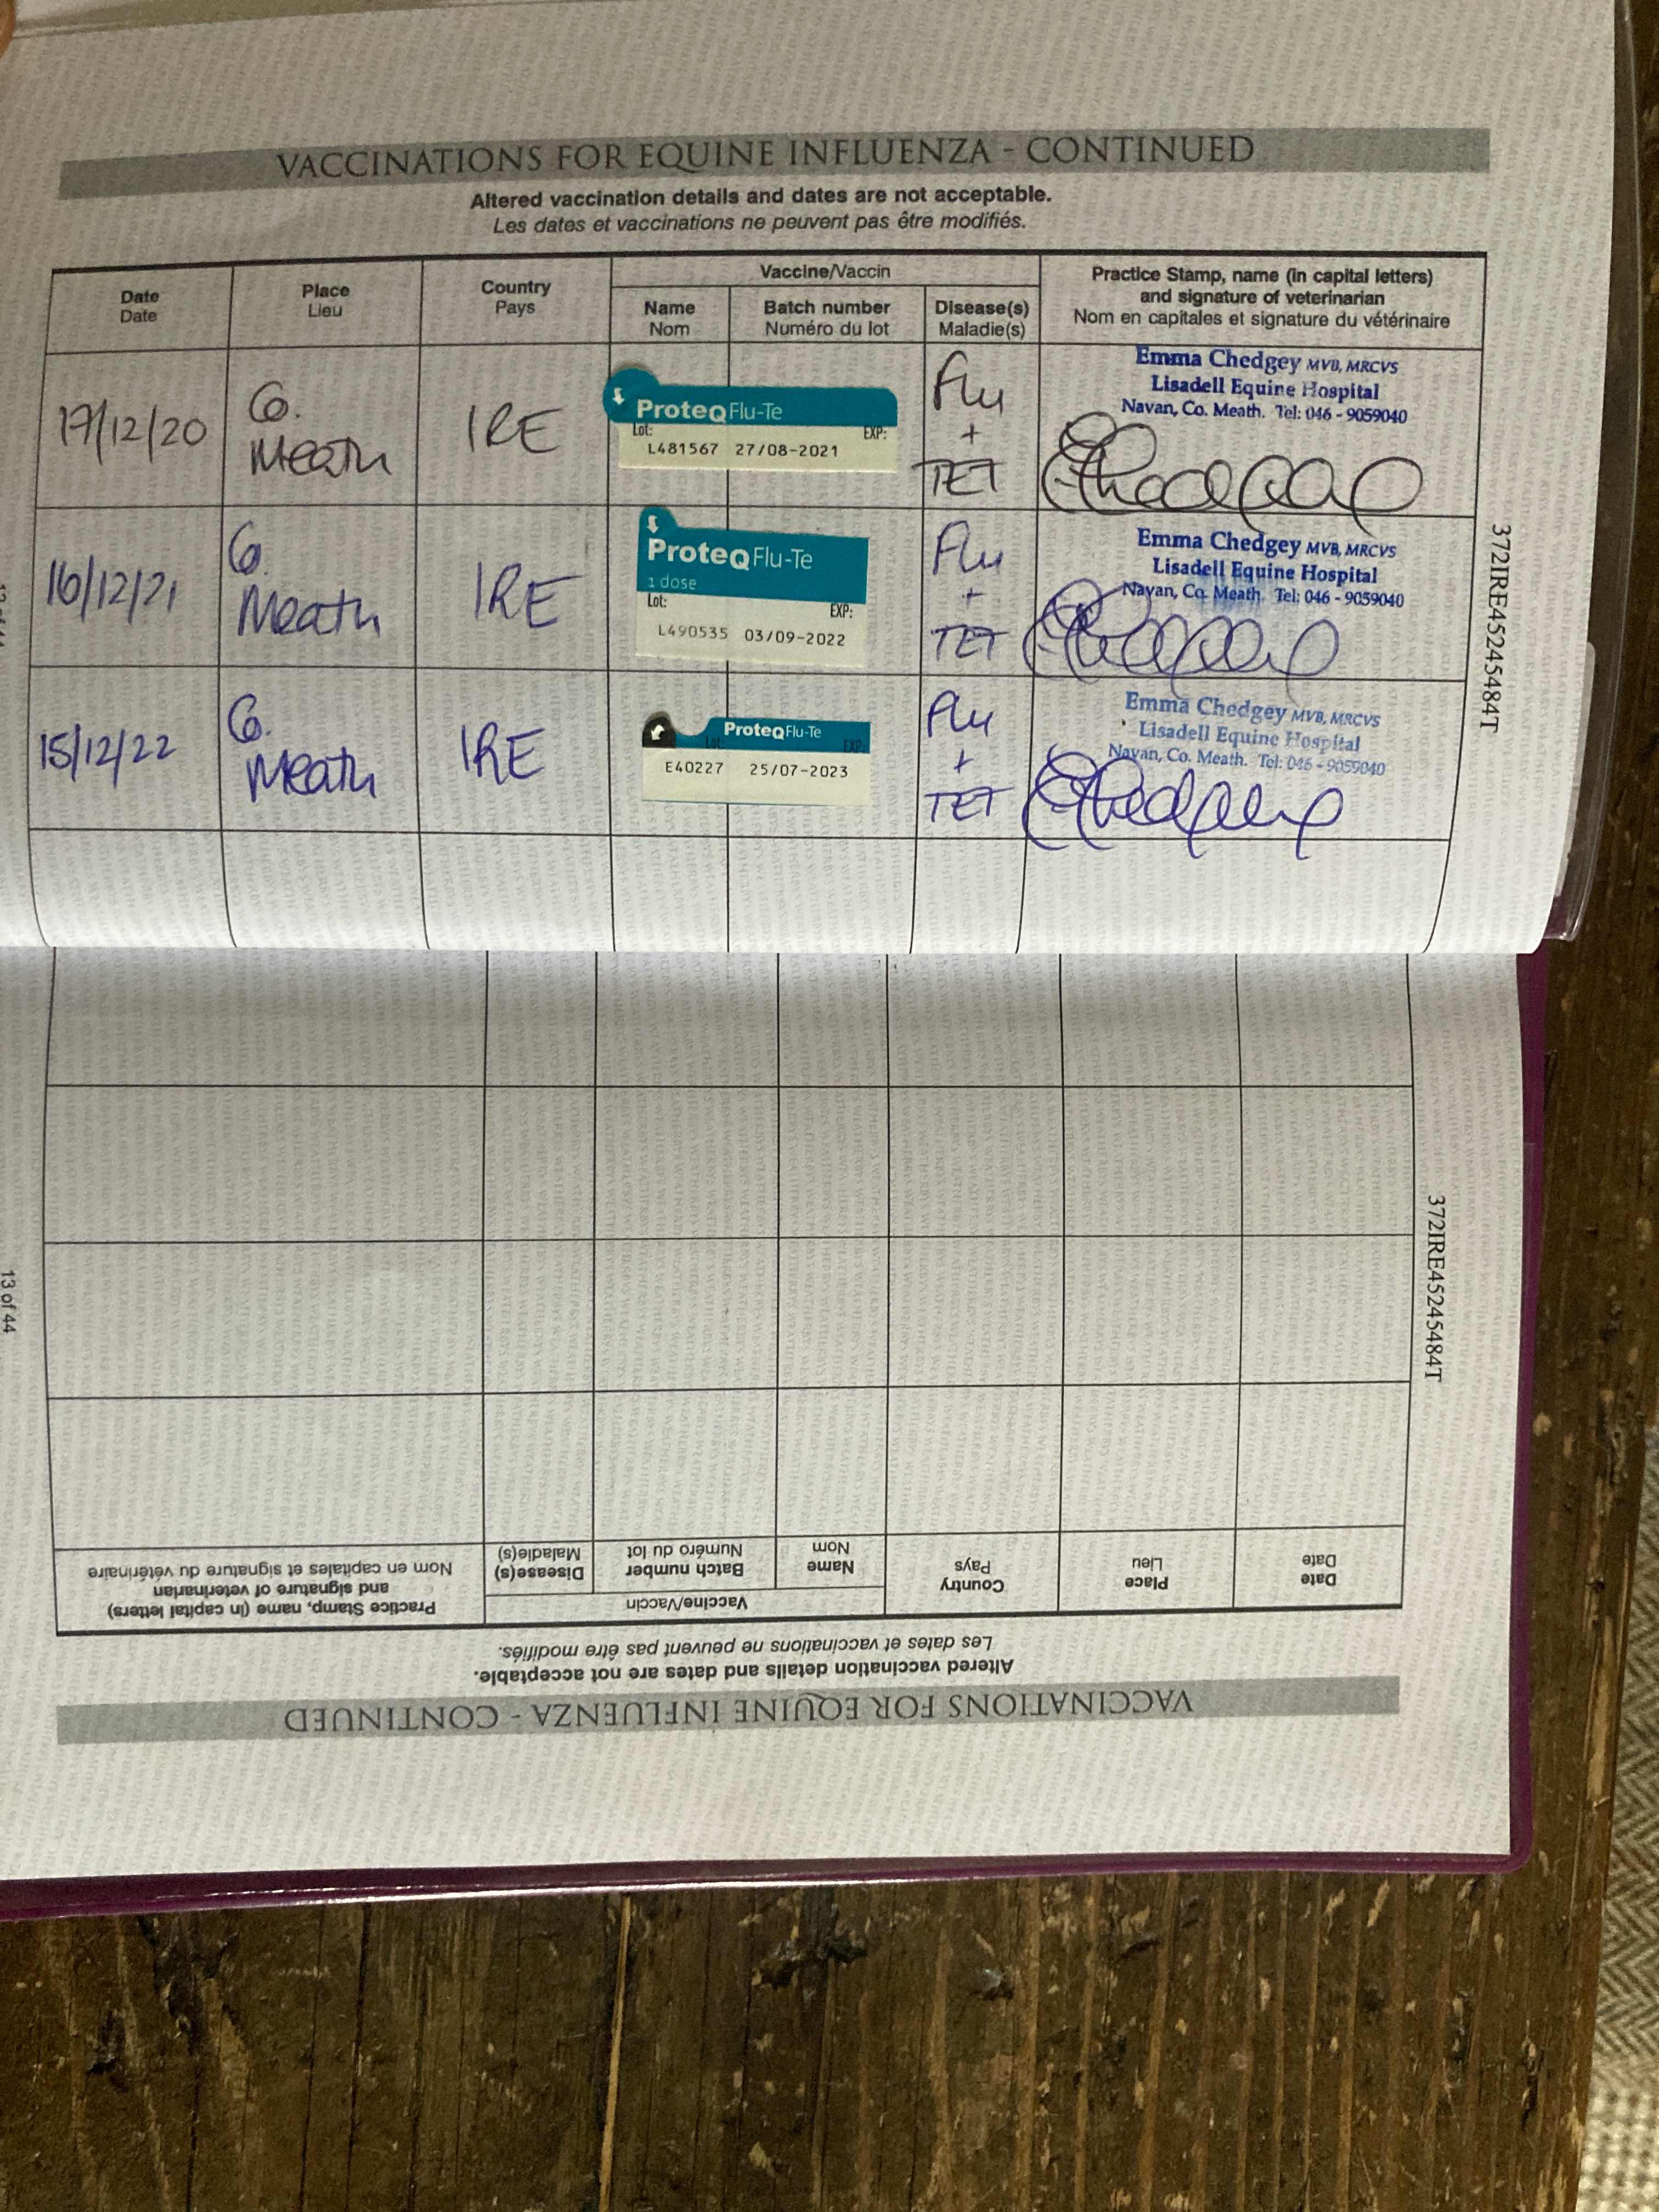 VACCINATIONS FOR EQUINE INFLUENZA - CONTINUED
Altered vaccination details and dates are not acceptable.
Les dates et vaccinations ne peuvent pas être modifiés.
Date
Date
Place
Lieu
Country
Pays
Vaccine/Vaccin
Name
Nom
Batch number
Numéro du lot
Disease(s)
Maladie(s)
Practice Stamp, name (in capital letters)
and signature of veterinarian
Nom en capitales et signature du vétérinaire
17/12/20
Co.
Meath
IRE
ProteqFlu-Te
Lot: EXP:
L481567 27/08-2021
Flu
+
TET
Emma Chedgey MVB, MRCVS
Lisadell Equine Hospital
Navan, Co. Meath. Tel: 046 - 9059040
16/12/21
Co.
Meath
IRE
ProteqFlu-Te
1 dose
Lot: EXP:
L490535 03/09-2022
Flu
+
TET
Emma Chedgey MVB, MRCVS
Lisadell Equine Hospital
Navan, Co. Meath. Tel: 046 - 9059040
15/12/22
Co.
Meath
IRE
ProteqFlu-Te
Lot: EXP:
E40227 25/07-2023
Flu
+
TET
Emma Chedgey MVB, MRCVS
Lisadell Equine Hospital
Navan, Co. Meath. Tel: 046 - 9059040
372IRE45245484T
VACCINATIONS FOR EQUINE INFLUENZA - CONTINUED
Altered vaccination details and dates are not acceptable.
Les dates et vaccinations ne peuvent pas être modifiés.
Date
Date
Place
Lieu
Country
Pays
Vaccine/Vaccin
Name
Nom
Batch number
Numéro du lot
Disease(s)
Maladie(s)
Practice Stamp, name (in capital letters)
and signature of veterinarian
Nom en capitales et signature du vétérinaire
372IRE45245484T
13 of 44